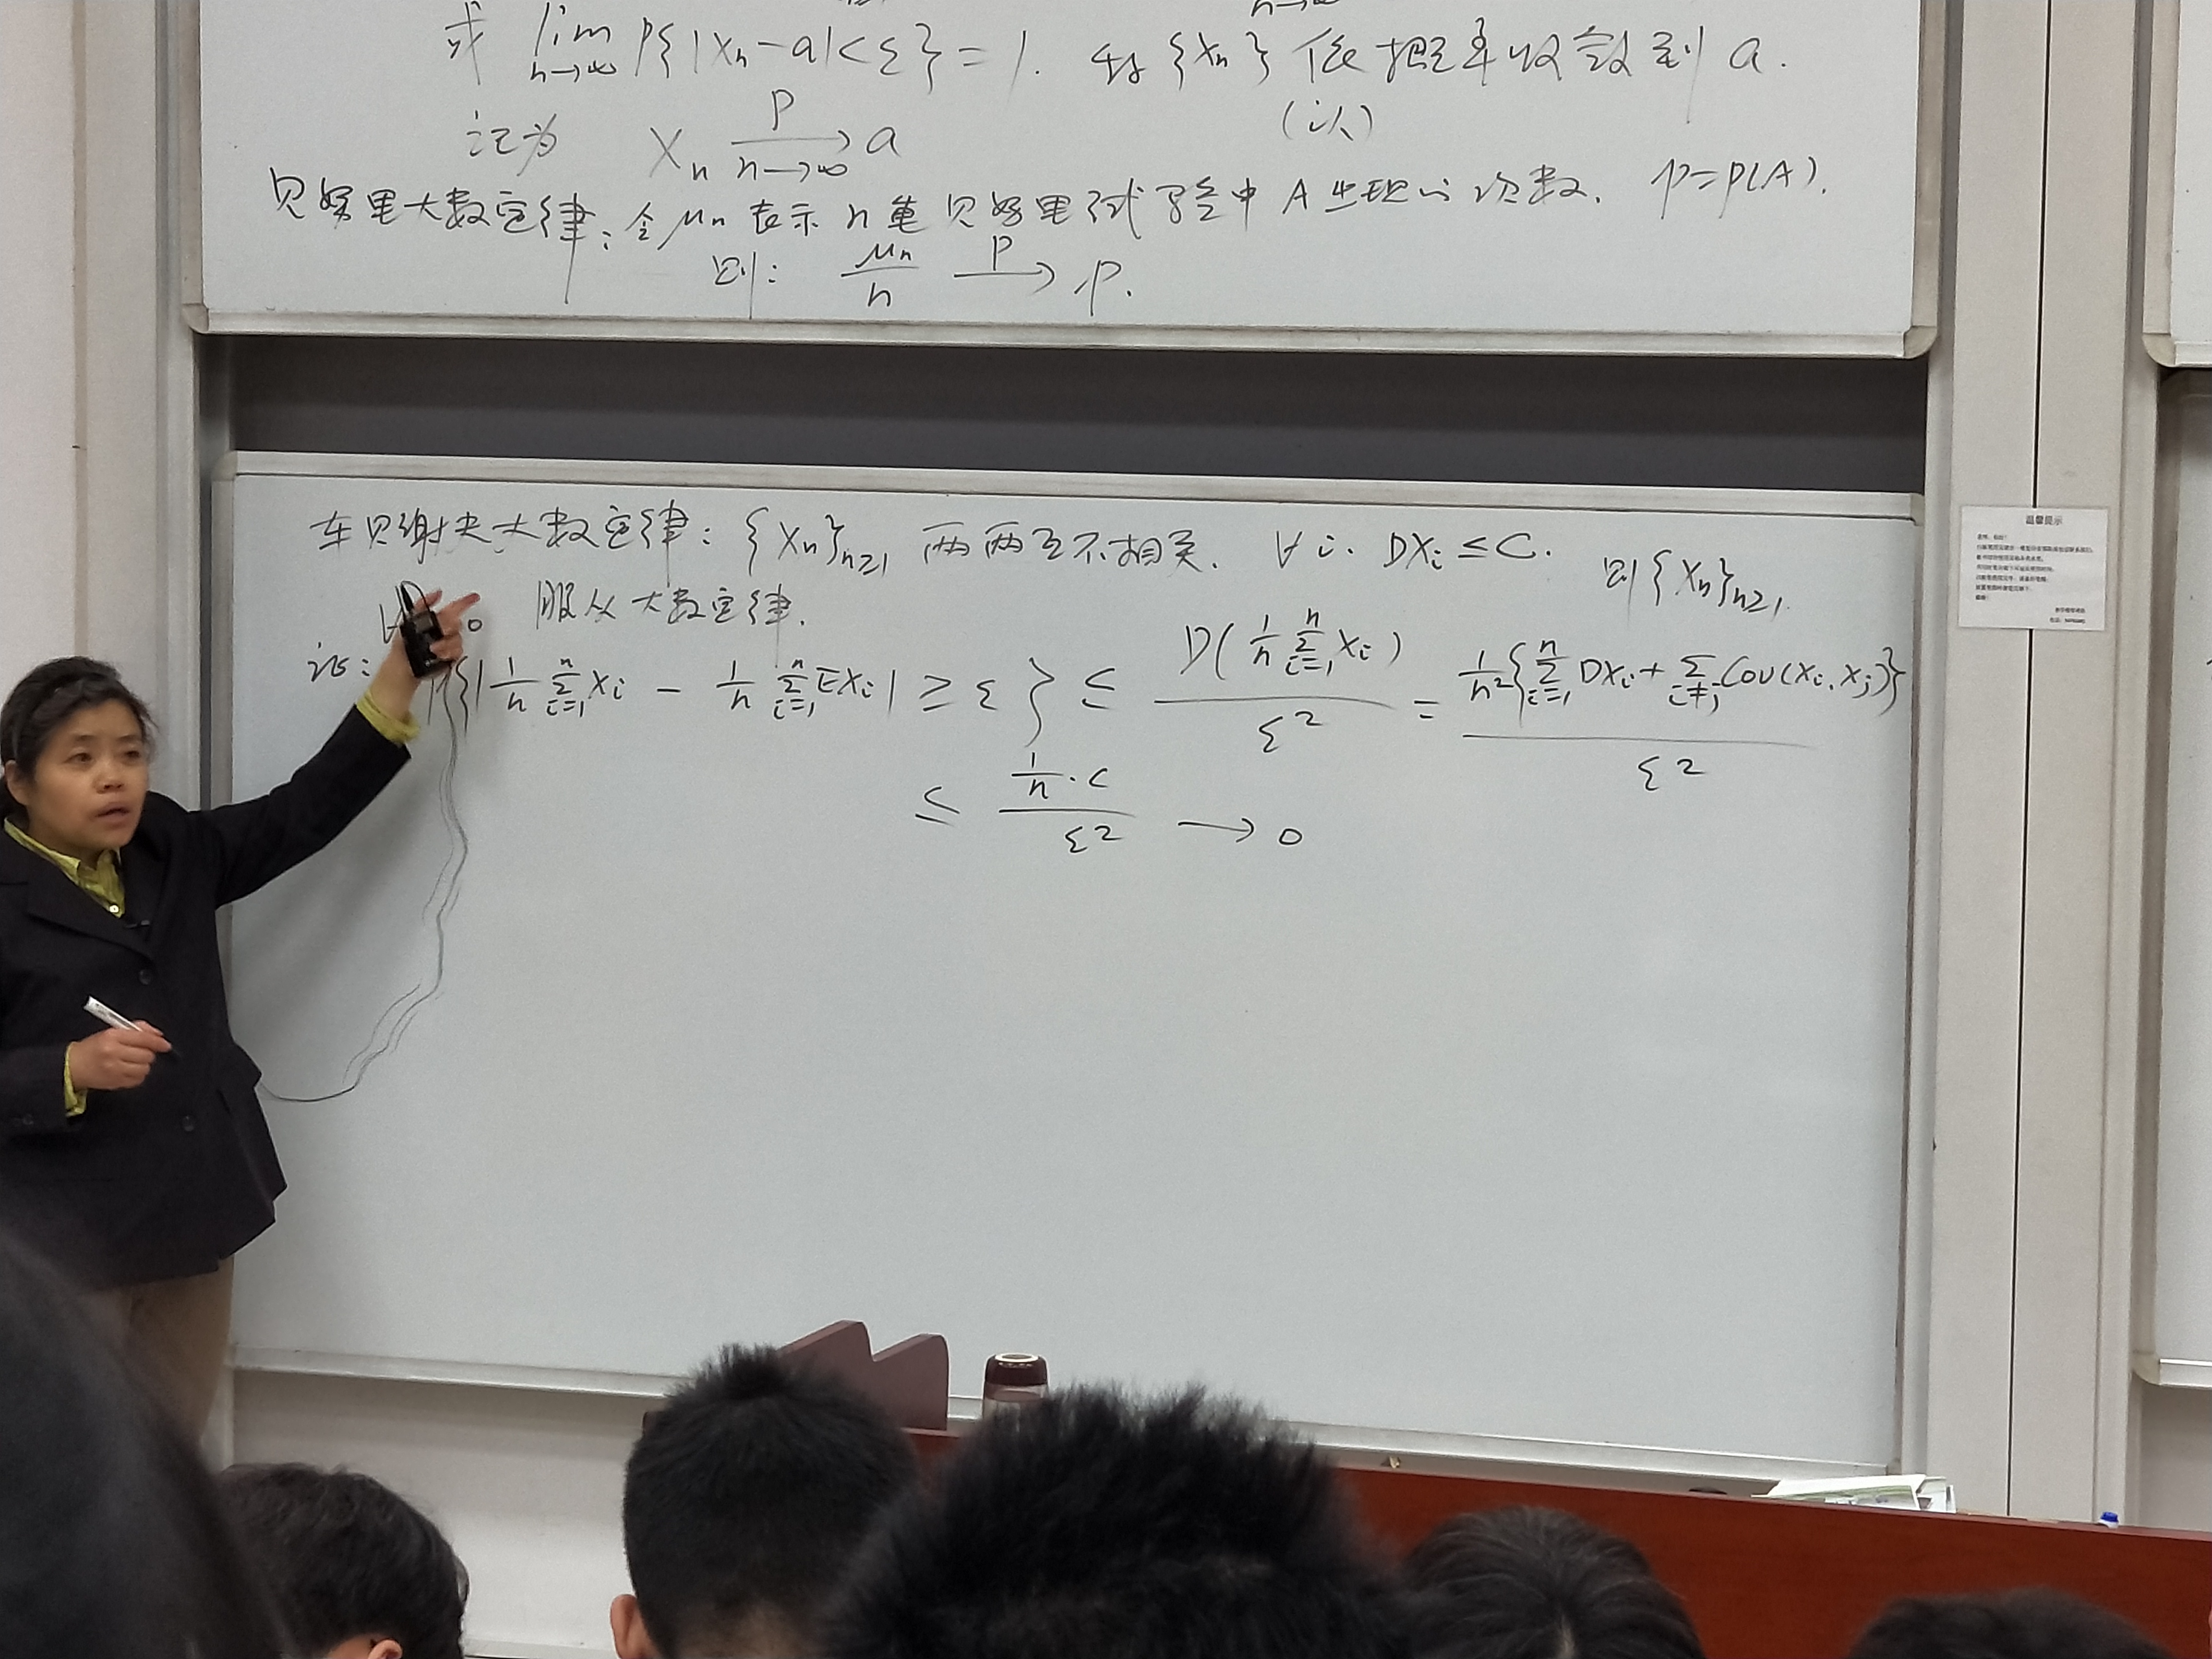 或 lim n→∞ P{|Xn-a|<ε}=1. 称{Xn}依概率收敛到a.
(以)
记为 Xn P→ n→∞ a
贝努里大数定律: 令μn表示n重贝努里试验中A出现的次数. p=P(A).
则: μn/n P→ p.
车贝谢夫大数定律: {Xn}n≥1 两两互不相关. ∀i. DXi≤C. 则{Xn}n≥1
服从大数定律.
证: P{|1/n Σ_{i=1}^n Xi - 1/n Σ_{i=1}^n EXi| ≥ ε} ≤ D(1/n Σ_{i=1}^n Xi)/ε² = 1/n²{Σ_{i=1}^n DXi + Σ_{i≠j} Cov(Xi,Xj)}/ε²
≤ (1/n·C)/ε² → 0
温馨提示